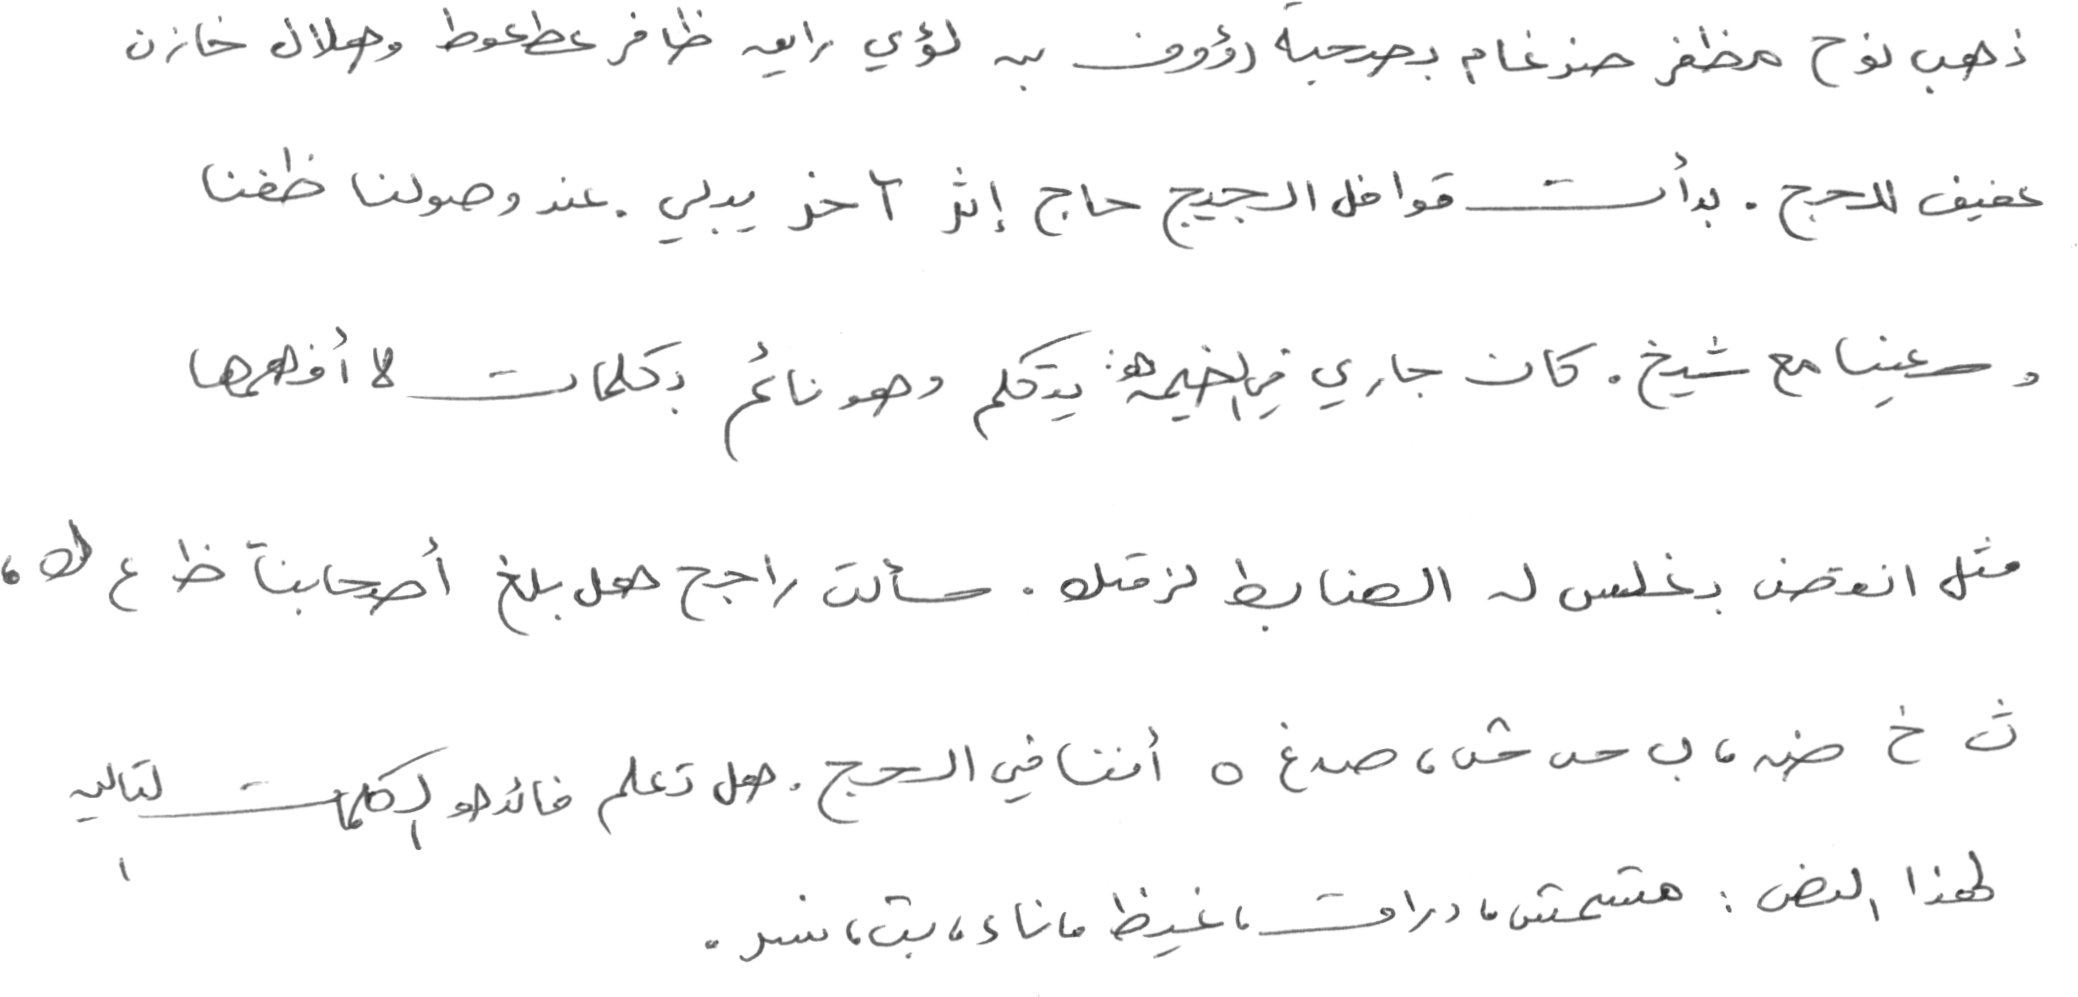 ذهب نوح مظفر ضرغام بصحبة رؤوف بن لؤي راجع ظافر عطعوط وهلال خازن
عفيف للحج . بدأت قوافل الحجيج حاج إثر آخر يدلي . عند وصولنا طفنا
ورعينا مع شيخ . كان جاري في الخيمة هو يتكلم وهو نائم بكلمات لا أفهمها
مثل انقض بغلس له الضابط لزمتك . سألت راجح هل بلغ أصحابنا ظ ع ك ،
ث خ ض ، ب حس شس ، صدغ ه أننا في الحج . هل تعلم فائدة الكلمات التالية
لهذا النص : هشمش ، درامت ، غيظ ، ناء ، بث ، نسر .